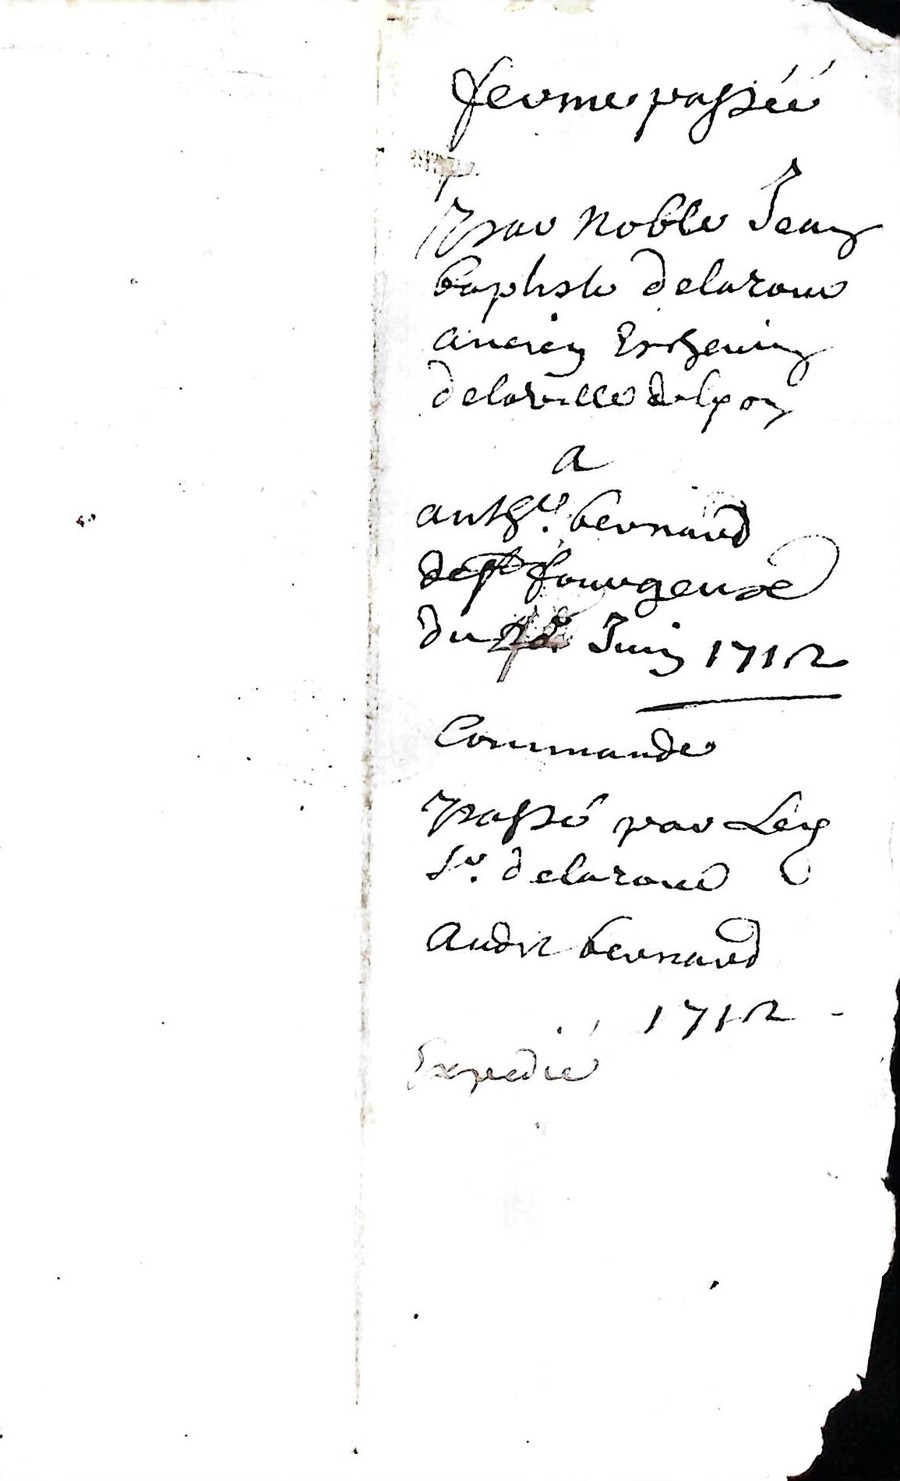 ferme passéé
par noble Jean
baptiste delaroue
ancien Eschevin
delaville du puy
a
anth.e bernard
de st fourgeuse
du Juin 1712
Commande
passé par Led
Sr. delaroue
Audit bernard
1712 -
Expedié